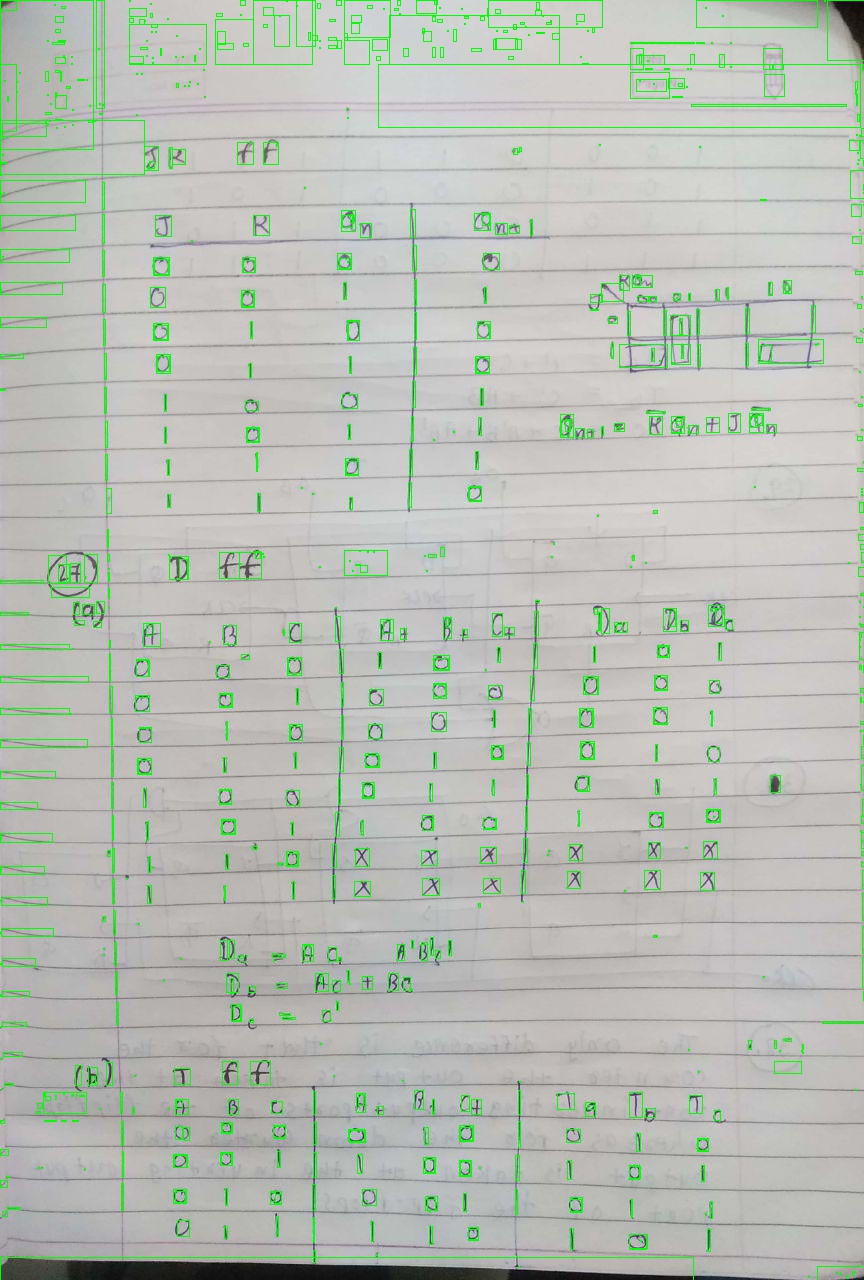 JK ff
J K Qn Qn+1
0 0 0 0
0 0 1 1
0 1 0 0
0 1 1 0
1 0 0 1
1 0 1 1
1 1 0 1
1 1 1 0
J KQn 00 01 11 10
0 1
1 1 1 1
Qn+1 = K̅ Qn + J Q̅n
27 D ff
(a)
A B C A+ B+ C+ Da Db Dc
0 0 0 1 0 1 1 0 1
0 0 1 0 0 0 0 0 0
0 1 0 0 0 1 0 0 1
0 1 1 0 1 0 0 1 0
1 0 0 0 1 1 0 1 1
1 0 1 1 0 0 1 0 0
1 1 0 X X X X X X
1 1 1 X X X X X X
Da = AC A'B'C'
Db = AC' + BC
Dc = C'
(b) T ff
A B C A+ B+ C+ Ta Tb Tc
0 0 0 0 1 0 0 1 0
0 0 1 1 0 0 1 0 1
0 1 0 0 0 1 0 1 1
0 1 1 1 1 0 1 0 1